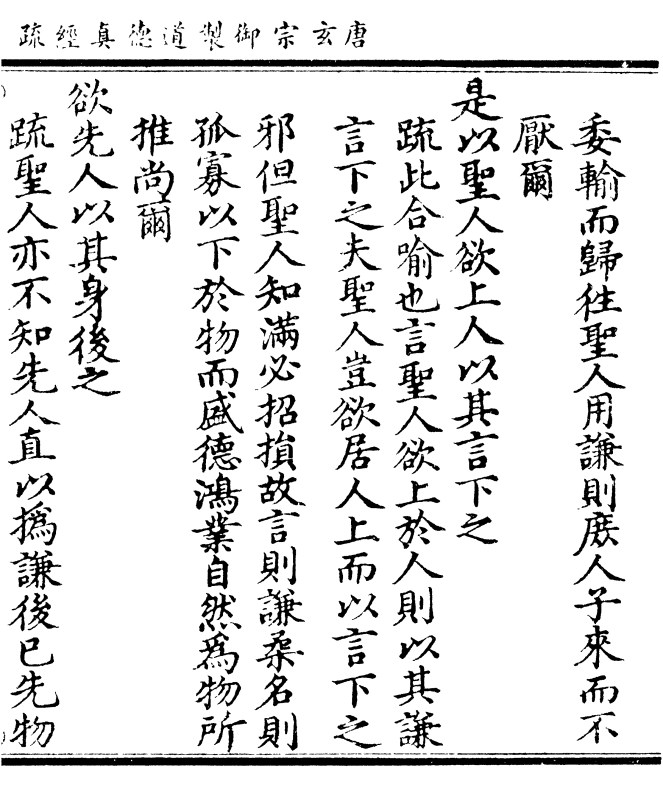 唐玄宗御製道德真經疏
委輸而歸往聖人用謙則庶人子來而不
厭爾
是以聖人欲上人以其言下之
疏此合喻也言聖人欲上於人則以其謙
言下之夫聖人豈欲居人上而以言下之
邪但聖人知滿必招損故言則謙柔名則
孤寡以下於物而盛德鴻業自然為物所
推尚爾
欲先人以其身後之
疏聖人亦不知先人直以撝謙後已先物